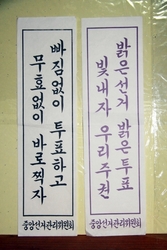 빠짐없이 투표하고
무효없이 바로찍자
중앙선거관리위원회
밝은선거 밝은투표
빛내자 우리주권
중앙선거관리위원회